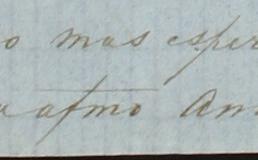 o mas esper
a afmo Ans